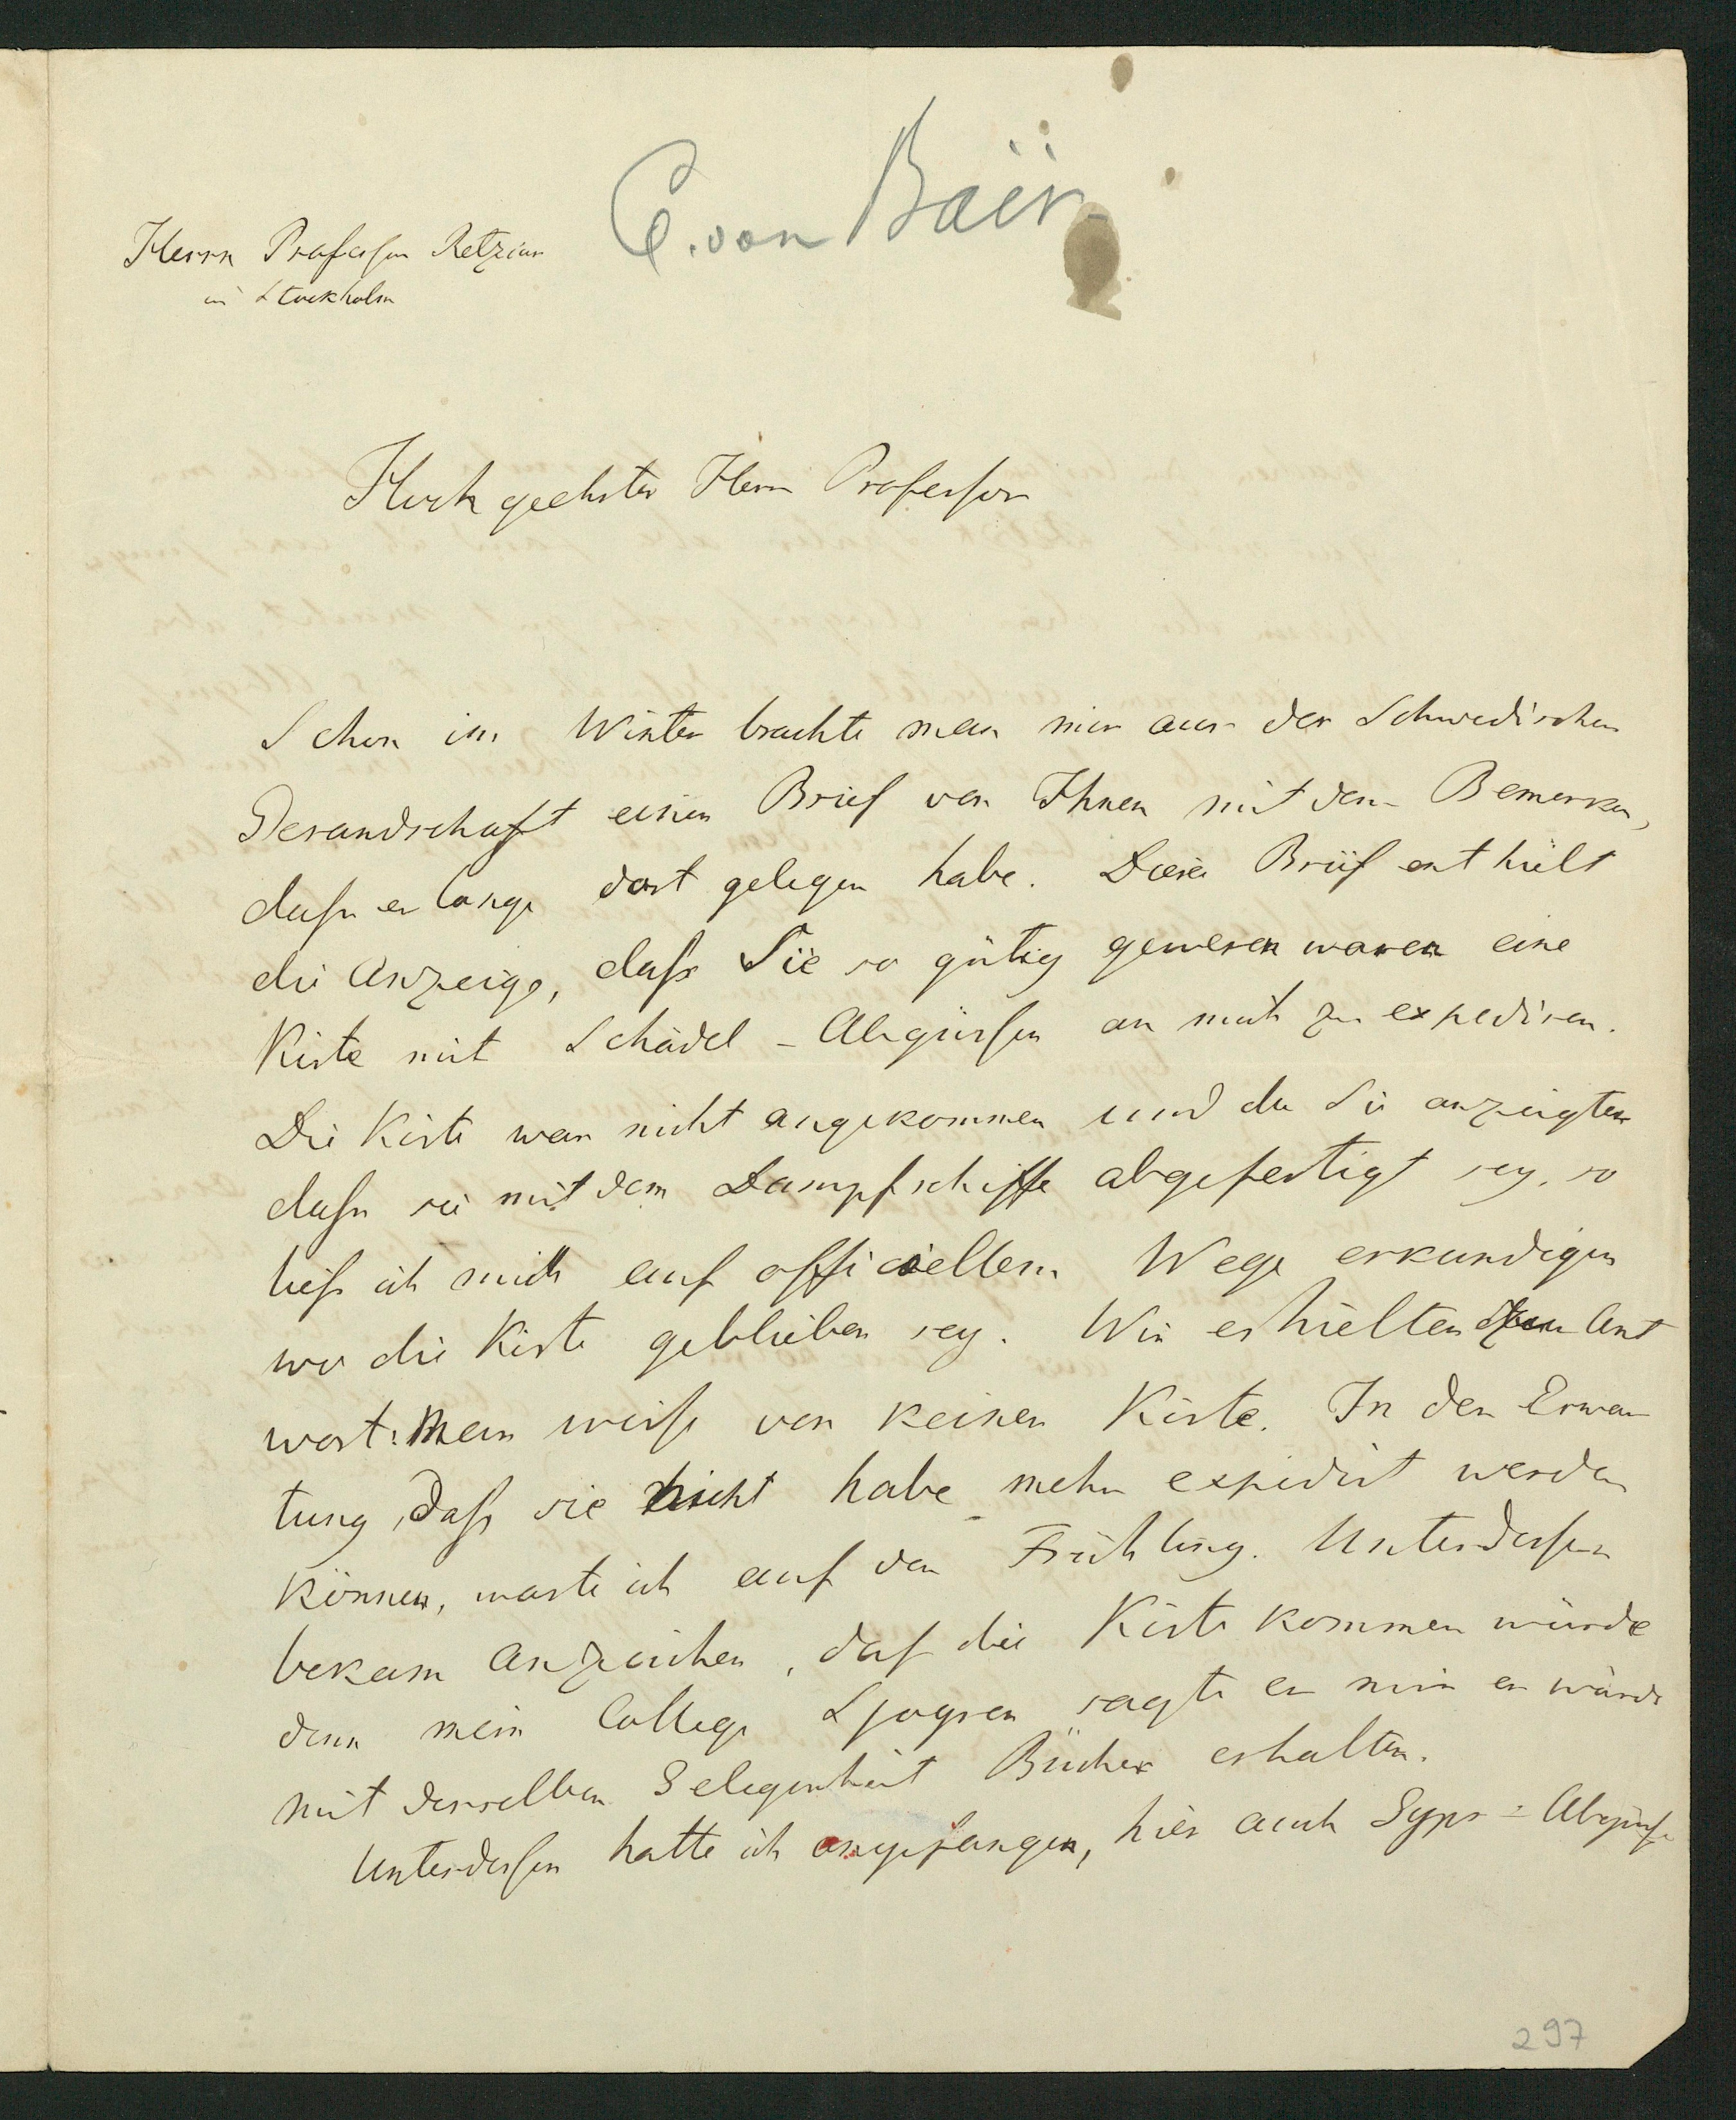 C. von Baër
Herrn Professor Retzius
in Stockholm
Hochgeehrter Herr Professor
Schon im Winter brachte man mir aus der Schwedischen
Gesandschaft einen Brief von Ihnen mit dem Bemerken,
dass er lange dort gelegen habe. Dieser Brief enthielt
die Anzeige, dass Sie so gütig gewesen waren eine
Kiste mit Schädel-Abgüssen an mich zu expediren.
Die Kiste war nicht angekommen und da Sie anzeigten
dass sie mit dem Dampfschiffe abgefertigt sey, so
liess ich mich auf officiellem Wege erkundigen
wo die Kiste geblieben sey. Wir erhielten zur Ant
wort: Man weiss von keiner Kiste. In der Erwar
tung, dass sie nicht habe mehr expedirt werden
können, warte ich auf den Frühling. Unterdessen
bekam Anzeichen, dass die Kiste kommen würde
denn mein College Sjögren sagte er mir er würde
mit derselben Gelegenheit Bücher erhalten.
Unterdessen hatte ich angefangen, hier auch Gyps=Abgüsse
297